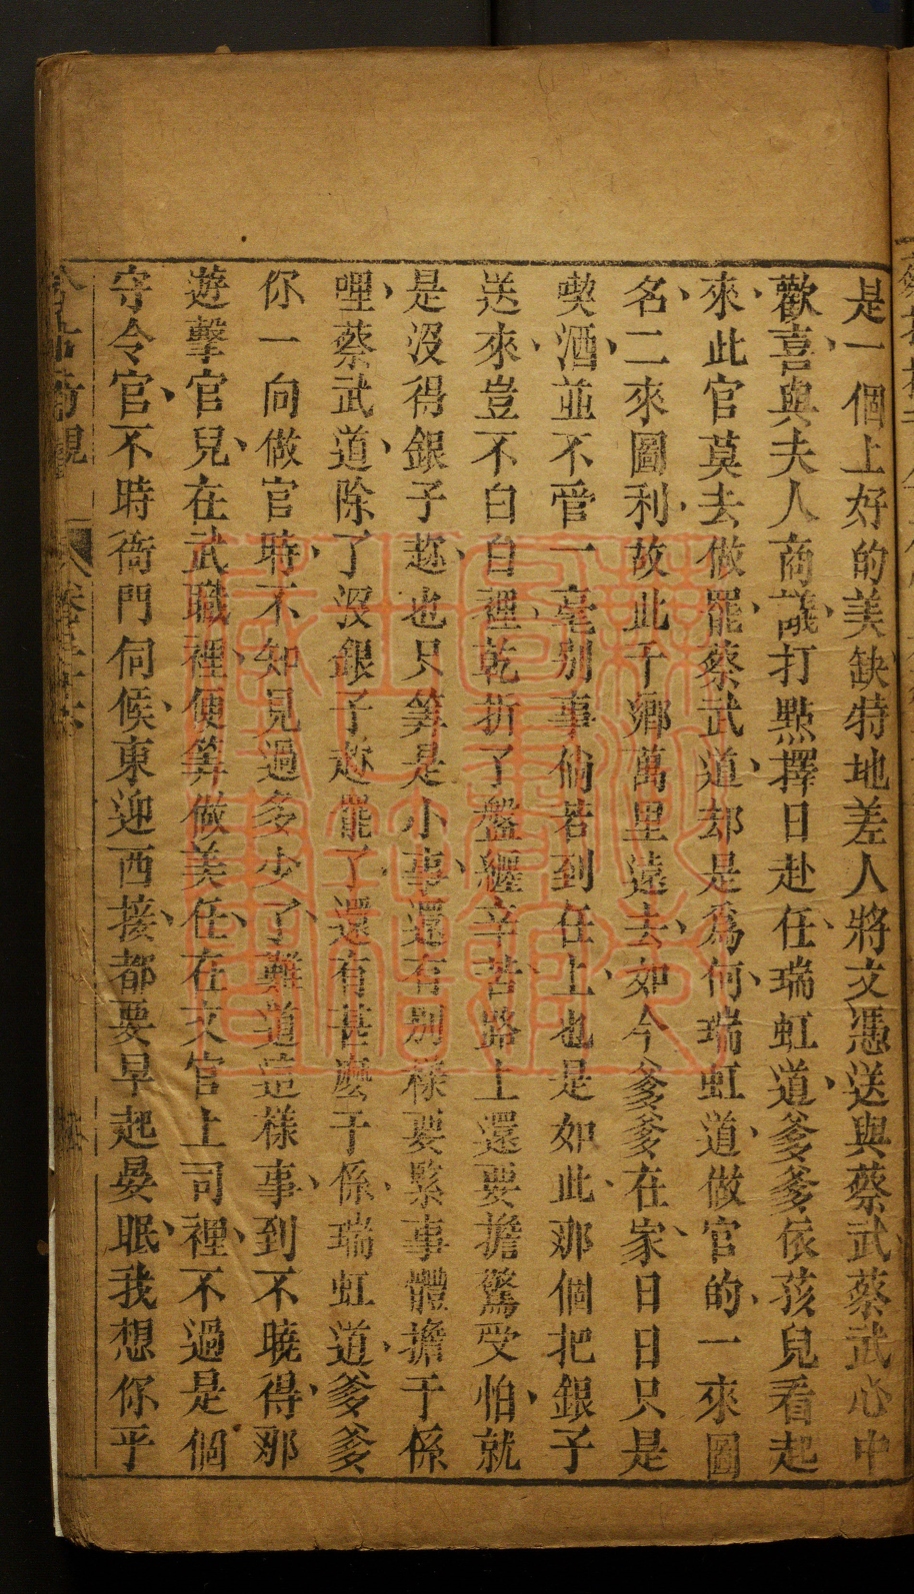 是一個上好的美缺特地差人將文憑送與蔡武蔡武心中
歡喜與夫人商議打點擇日赴任瑞虹道爹爹依孩兒看起
來此官莫去做罷蔡武道却是爲何瑞虹道做官的一來圖
名二來圖利故此千鄉萬里遠去如今爹爹在家日日只是
喫酒並不管一毫别事倘若到任上也是如此那個把銀子
送來豈不白白裡乾折了盤纏辛苦路上還要擔驚受怕就
是沒得銀子趂也只筭是小事還有别樣要緊事體擔干係
哩蔡武道除了沒銀子趂罷了還有甚麼干係瑞虹道爹爹
你一向做官時不知見過多少了難道這樣事到不曉得那
遊擊官兒在武職裡便筭做美任在文官上司裡不過是個
守令官不時衙門伺候東迎西接都要早起晏眠我想你平
今古奇觀